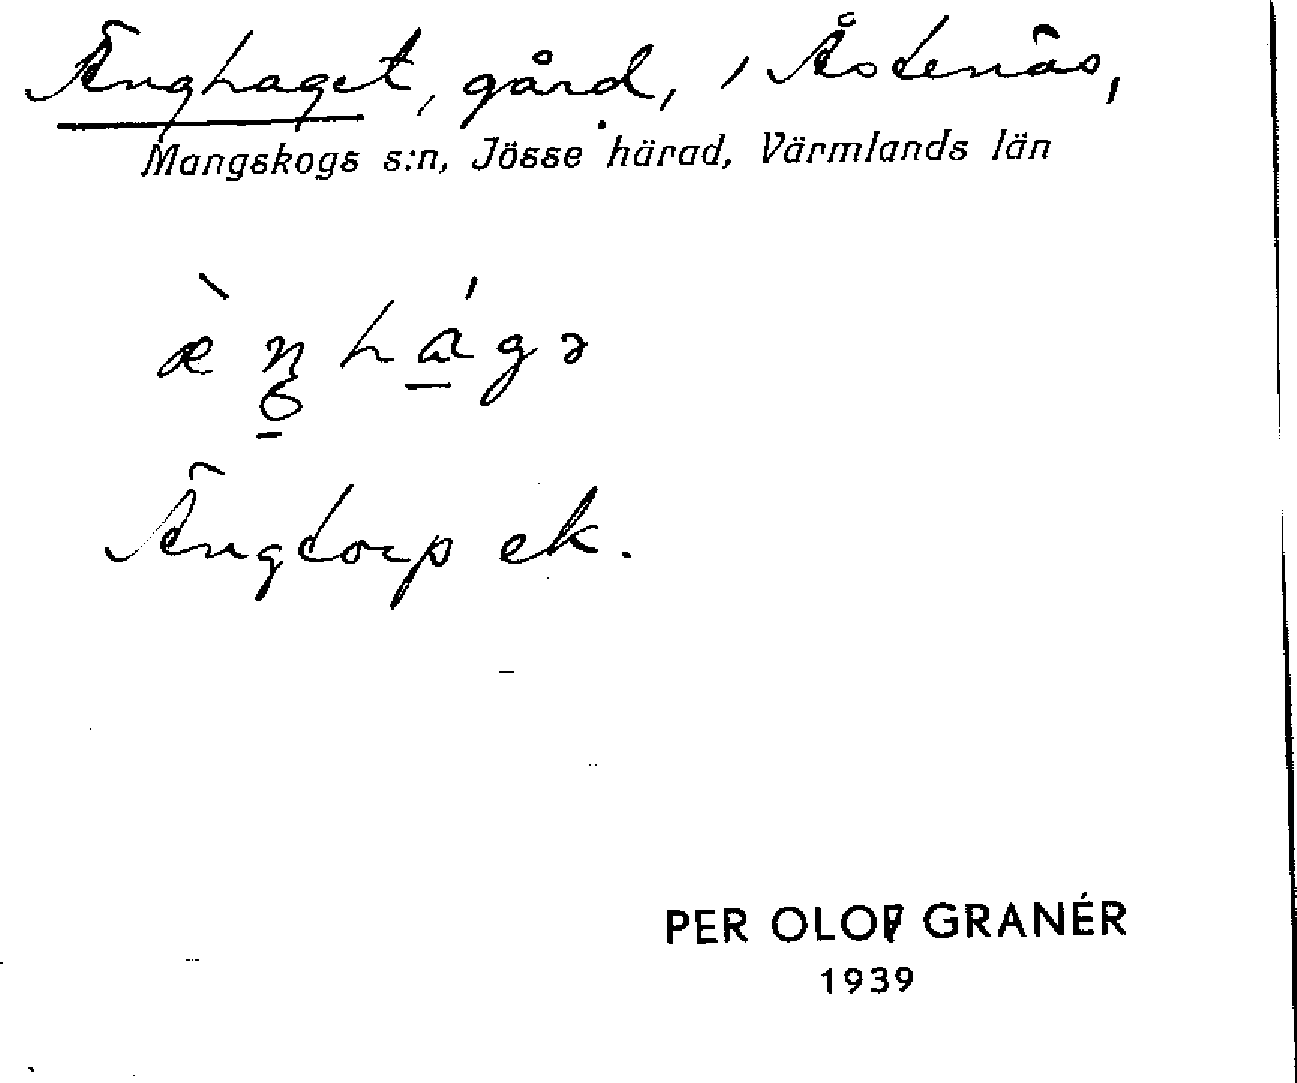 Änghaget, gård, i Åstenäs,
Mangskogs s:n, Jösse härad, Värmlands län
æ̀ŋhág̵ə
Ängtorp ek.
PER OLOF GRANÉR
1939